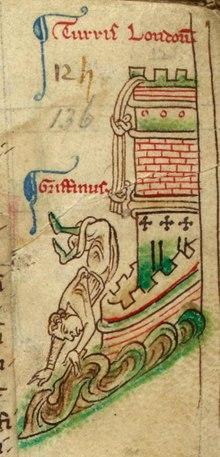 Turris London̄
12 h
136
Griffinus